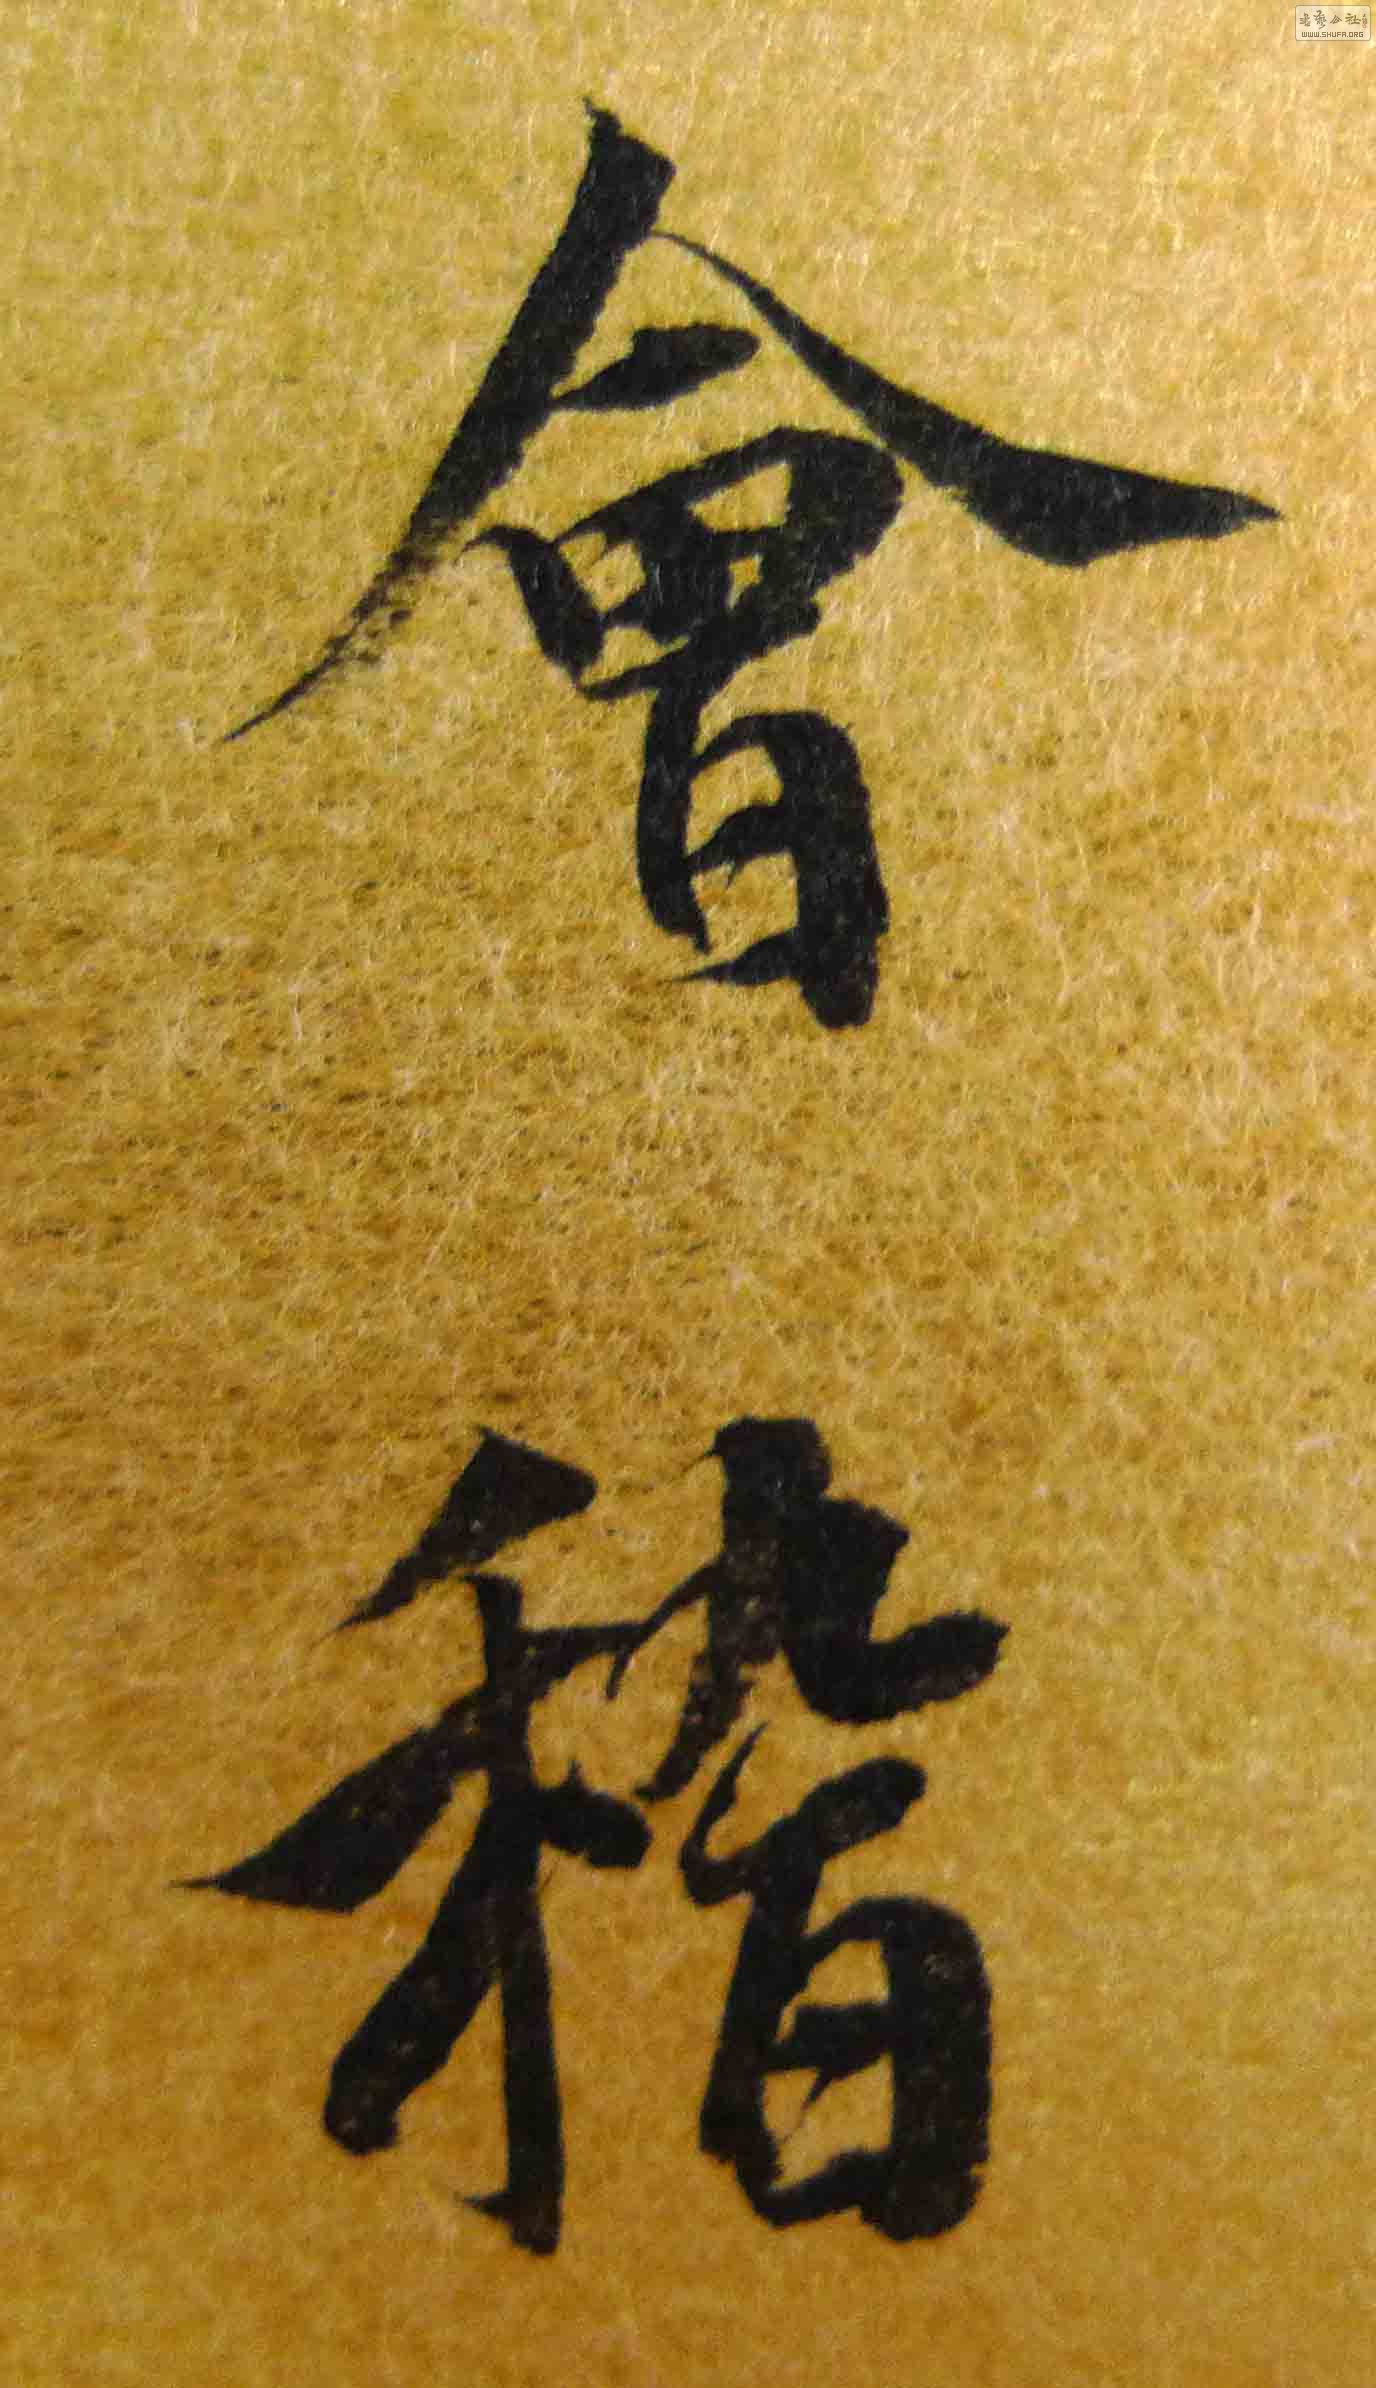 會稽
書藝公社
WWW.SHUFA.ORG